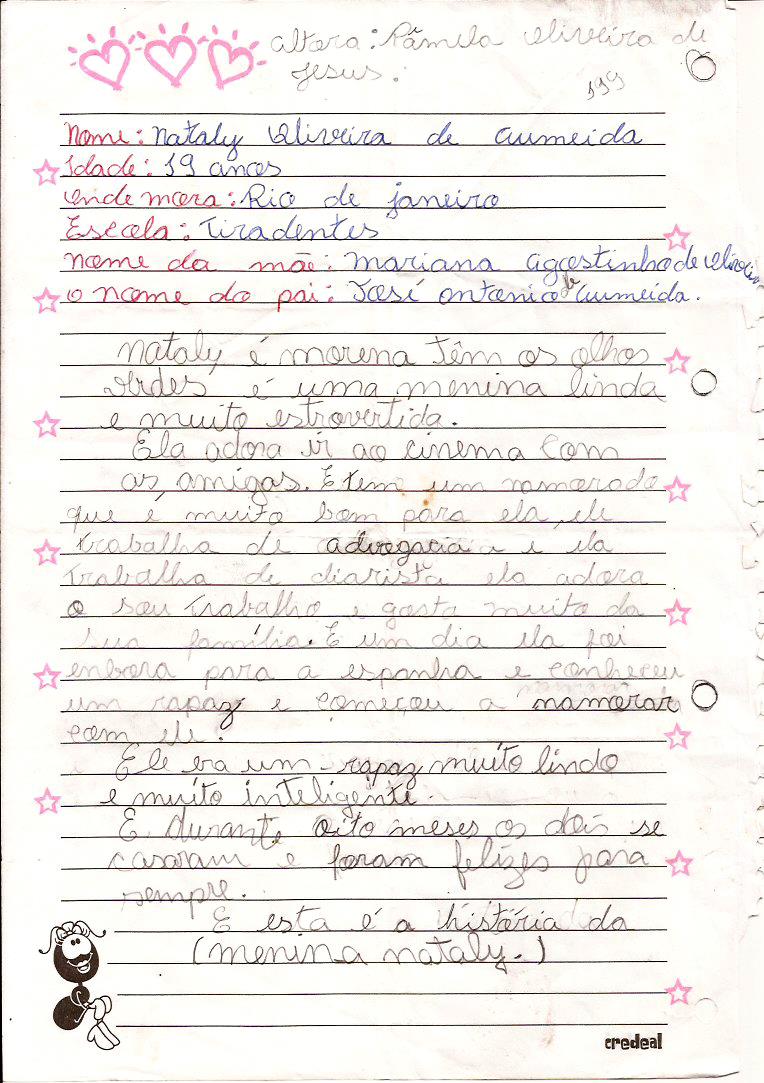 altora: Pâmela Oliveira de
Jesus.
199
Nome: nataly Oliveira de aumeida
Idade: 19 anos
onde mora: Rio de janeiro
Escola: Tiradentes
nome da mãe: mariana agostinho de Oliveira
o nome do pai: José antonio de aumeida.
nataly é morena têm os olhos
verdes é uma menina linda
e muito estrovertida.
Ela adora ir ao cinema com
as amigas. E tem um namorado
que é muito bom para ela, ele
trabalha de advogacia a e ela
trabalha de diarista ela adora
o seu trabalho e gosta muito da
sua família. E um dia ela foi
enbora para a espanha e conheceu
um rapaz e começou a namorar
com ele.
Ele era um rapaz muito lindo
e muito inteligente.
E durante oito meses os dois se
casaram e foram felizes para
sempre.
E esta é a história da
(menina nataly.)
credeal